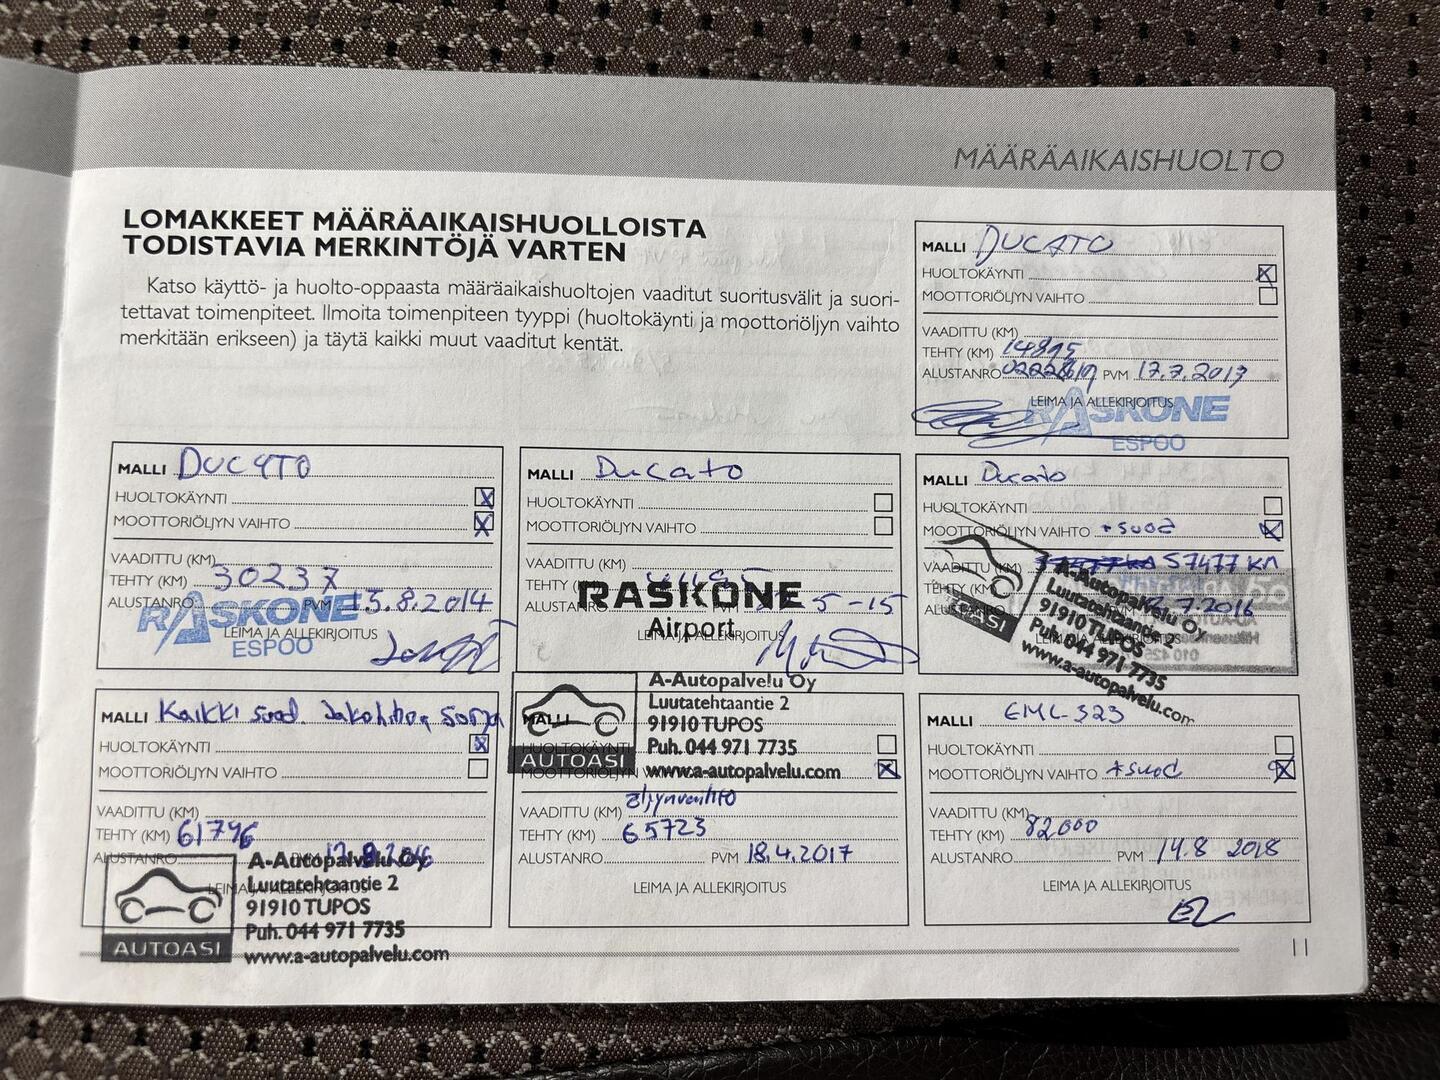 MÄÄRÄAIKAISHUOLTO
LOMAKKEET MÄÄRÄAIKAISHUOLLOISTA
TODISTAVIA MERKINTÖJÄ VARTEN
Katso käyttö- ja huolto-oppaasta määräaikaishuoltojen vaaditut suoritusvälit ja suori-
tettavat toimenpiteet. Ilmoita toimenpiteen tyyppi (huoltokäynti ja moottoriöljyn vaihto
merkitään erikseen) ja täytä kaikki muut vaaditut kentät.
MALLI DUCATO
HUOLTOKÄYNTI
MOOTTORIÖLJYN VAIHTO
VAADITTU (KM)
TEHTY (KM) 14895
ALUSTANRO PVM 17.7.2013
LEIMA JA ALLEKIRJOITUS
RASKONE
ESPOO
MALLI DUCATO
HUOLTOKÄYNTI
MOOTTORIÖLJYN VAIHTO
VAADITTU (KM)
TEHTY (KM) 30237
ALUSTANRO PVM 15.8.2014
RASKONE
LEIMA JA ALLEKIRJOITUS
ESPOO
MALLI Ducato
HUOLTOKÄYNTI
MOOTTORIÖLJYN VAIHTO
VAADITTU (KM)
TEHTY (KM)
ALUSTANRO PVM 5-15
RASKONE
Airport
LEIMA JA ALLEKIRJOITUS
MALLI Ducato
HUOLTOKÄYNTI
MOOTTORIÖLJYN VAIHTO +suod
VAADITTU (KM) 57477 KM
TEHTY (KM)
ALUSTANRO 7.2016
A-Autopalvelu Oy
Luutatehtaantie 2
91910 TUPOS
Puh. 044 971 7735
www.a-autopalvelu.com
MALLI Kaikki suod.
HUOLTOKÄYNTI
MOOTTORIÖLJYN VAIHTO
VAADITTU (KM)
TEHTY (KM) 61796
ALUSTANRO
LEIMA JA ALLEKIRJOITUS
AUTOASI
A-Autopalvelu Oy
Luutatehtaantie 2
91910 TUPOS
Puh. 044 971 7735
www.a-autopalvelu.com
MALLI
HUOLTOKÄYNTI
MOOTTORIÖLJYN
AUTOASI
A-Autopalvelu Oy
Luutatehtaantie 2
91910 TUPOS
Puh. 044 971 7735
www.a-autopalvelu.com
VAADITTU (KM) öljynvaihto
TEHTY (KM) 65723
ALUSTANRO PVM 18.4.2017
LEIMA JA ALLEKIRJOITUS
MALLI EML-323
HUOLTOKÄYNTI
MOOTTORIÖLJYN VAIHTO +suod
VAADITTU (KM)
TEHTY (KM) 82000
ALUSTANRO PVM 14.8 2018
LEIMA JA ALLEKIRJOITUS
11